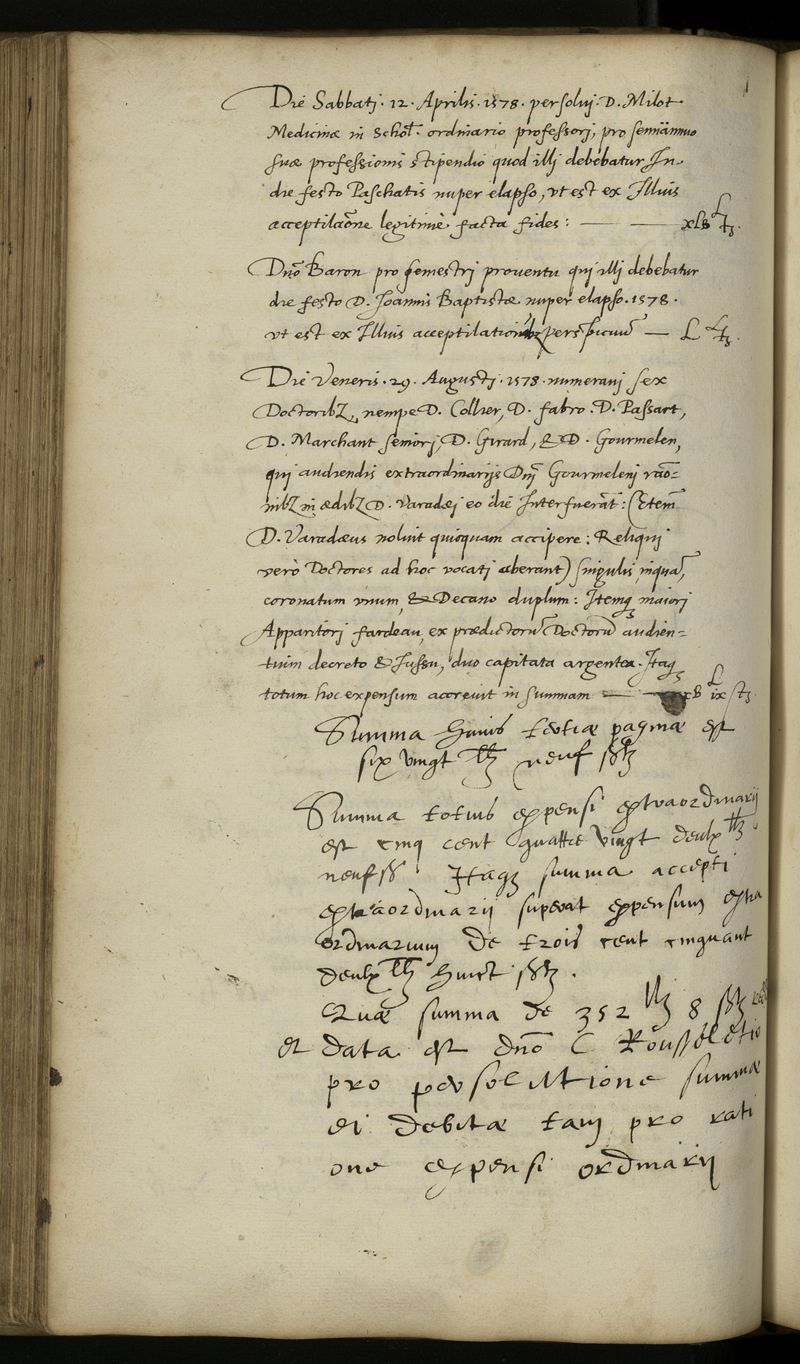 Die Sabbatj. 12. Aprilis. 1578. persoluj. D. Milot
Medicinæ in Schol. ordinario professorj, pro semiannuo
suæ professionis stipendio quod illj debebatur In
die festo Paschatis nuper elapso, vt est ex Illius
acceptilaõne legitimè facta fides:
Dnõ Baron pro semestrj prouentu quj illj debebatur
die festo D. Joannis Baptistæ nuper elapso. 1578.
vt est ex Illius perspicuũ — L
Die Veneris. 29. Augustj. 1578. numerauj sex
Doctoribz, nempe D. Collier, D. fabro. D. Passart,
D. Marchant seniorj, D. Girard, & D. Gourmelen,
quj audiendis extraordinarijs Dnj Gourmelenj raõ-
nibz in ædibz D. Varadej eo die Interfuerãt: (Etem
D. Varadæus noluit quicquam accipere: Reliquj
verò Doctores ad hoc vocatj aberant) singulis, inquã,
coronatum vnum, & Decano duplum: Itemq maiorj
Apparitorj fardeau, ex prædictorũ Doctorũ audien-
tium decreto & Jussu, duo capitata argentea. Itaq
totum hoc expensum accreuit in summam
Summa huius tertiæ paginæ est
six vingt neuf
Summa totius expensi extraordinarij
est cinq cent quattre vingt deulx
neuf Itaq summa accepti
extraordinarij superat expensum extra
ordinarium de trois cent cinquant
deulx huict
Quæ summa de 352 8
et data est dnõ C Rousselet
pro persolutione summæ
ei debitæ tam pro rati
one expensi ordinarij